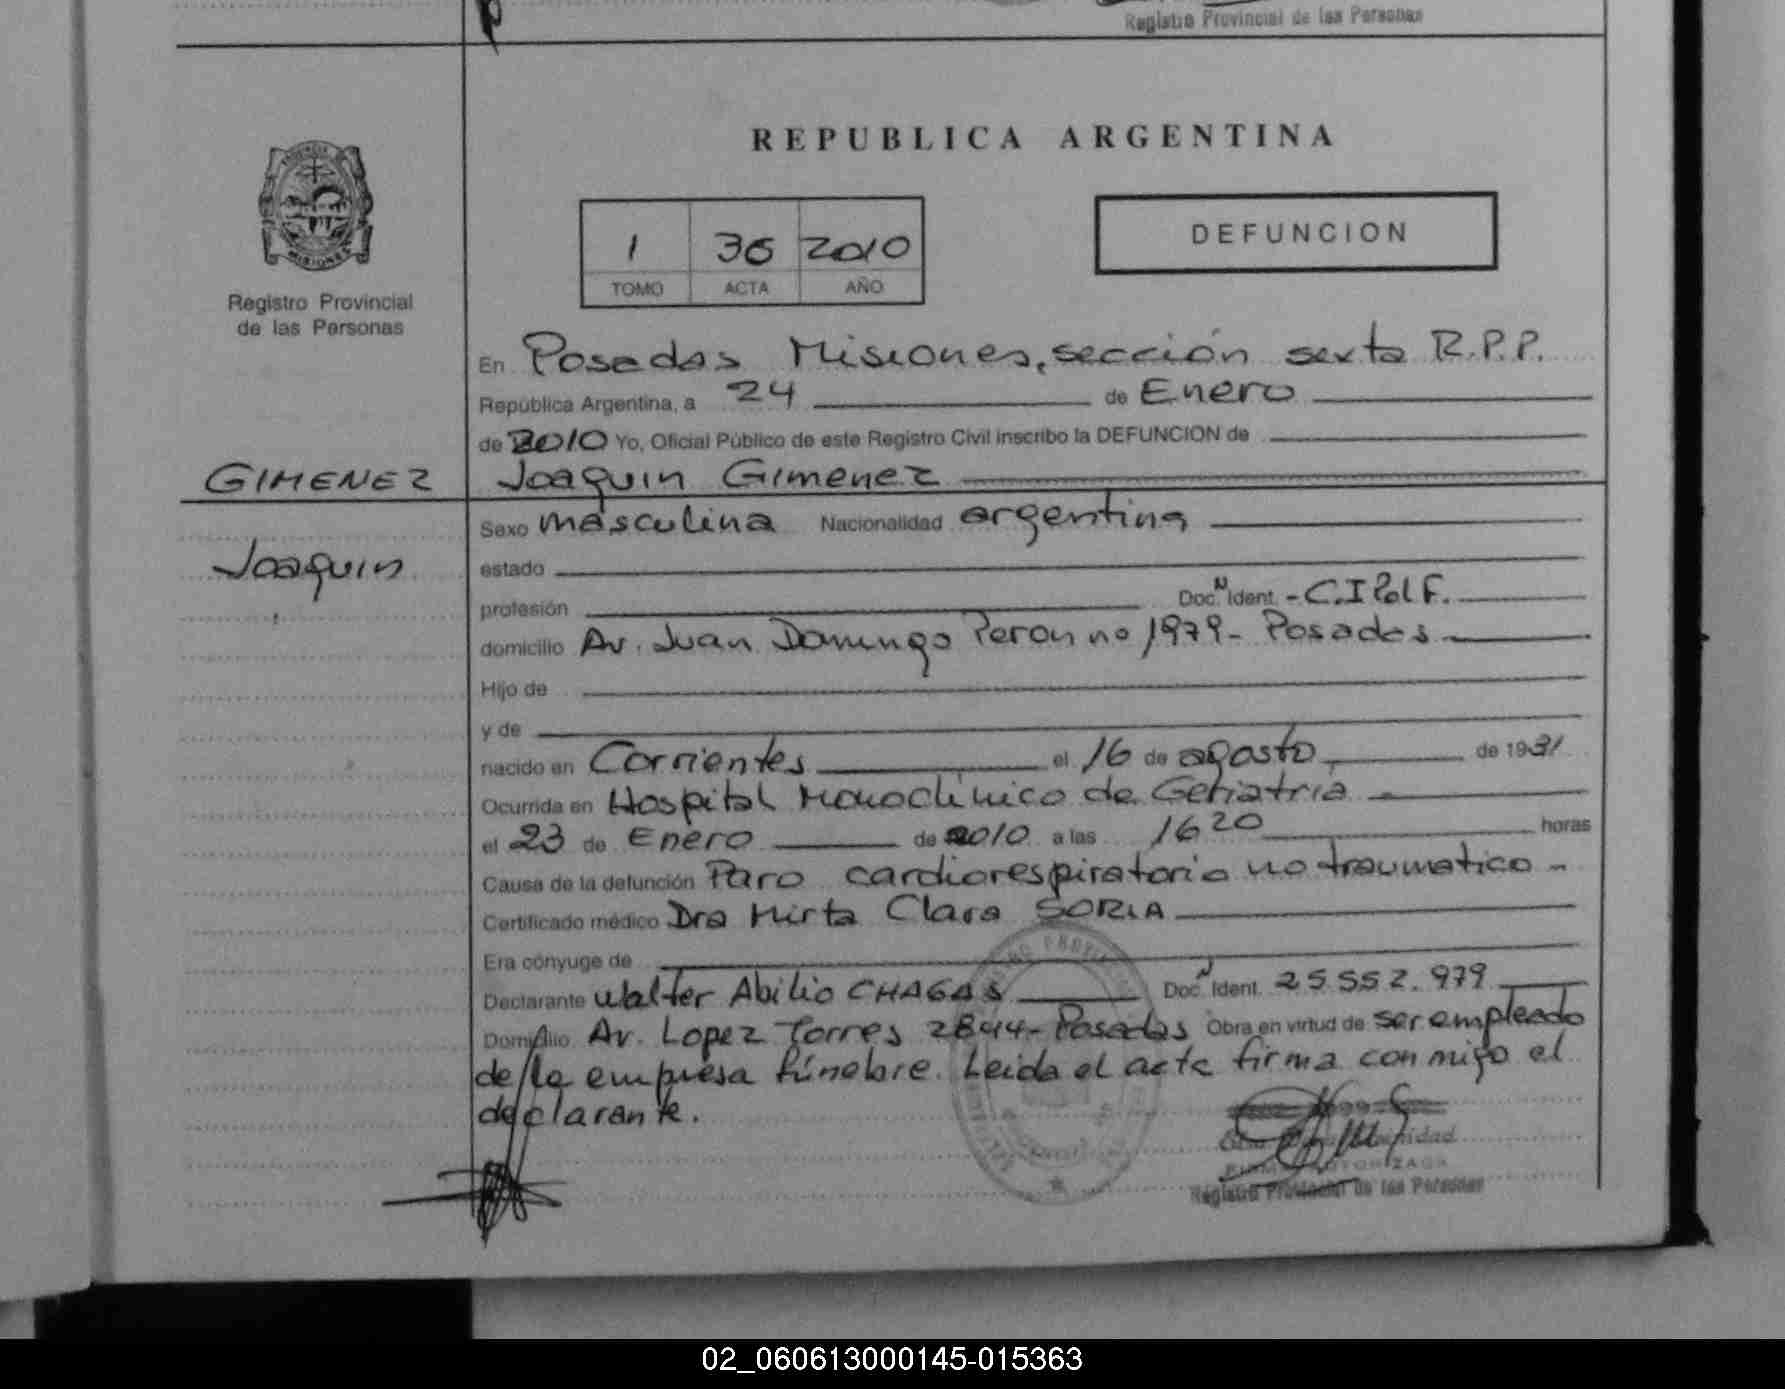 Registro Provincial de las Personas
REPUBLICA ARGENTINA
1 36 2010
TOMO ACTA AÑO
DEFUNCION
MISIONES
Registro Provincial
de las Personas
En Posadas Misiones, sección sexta R.P.P.
República Argentina, a 24 de Enero
de 2010 Yo, Oficial Público de este Registro Civil inscribo la DEFUNCION de
GIMENEZ Joaquin Gimenez
Sexo masculina Nacionalidad argentina
Joaquin
estado
profesión Doc. N Ident. - C.I Pol F.
domicilio Av. Juan Domingo Peron no 1979 - Posadas
Hijo de
y de
nacido en Corrientes el 16 de agosto de 1931
Ocurrida en Hospital Monoclinico de Geriatria
el 23 de Enero de 2010 a las 16 20 horas
Causa de la defunción Paro cardiorespiratorio no traumatico -
Certificado médico Dra Mirta Clara SORIA
Era cónyuge de
Declarante Walter Abilio CHAGAS Doc. N Ident. 25.552.979
Domicilio Av. Lopez Torres 2844 - Posadas Obra en virtud de ser empleado
de la empresa fúnebre. Leida el acta firma conmigo el
declarante.
Registro Provincial de las Personas
02_060613000145-015363